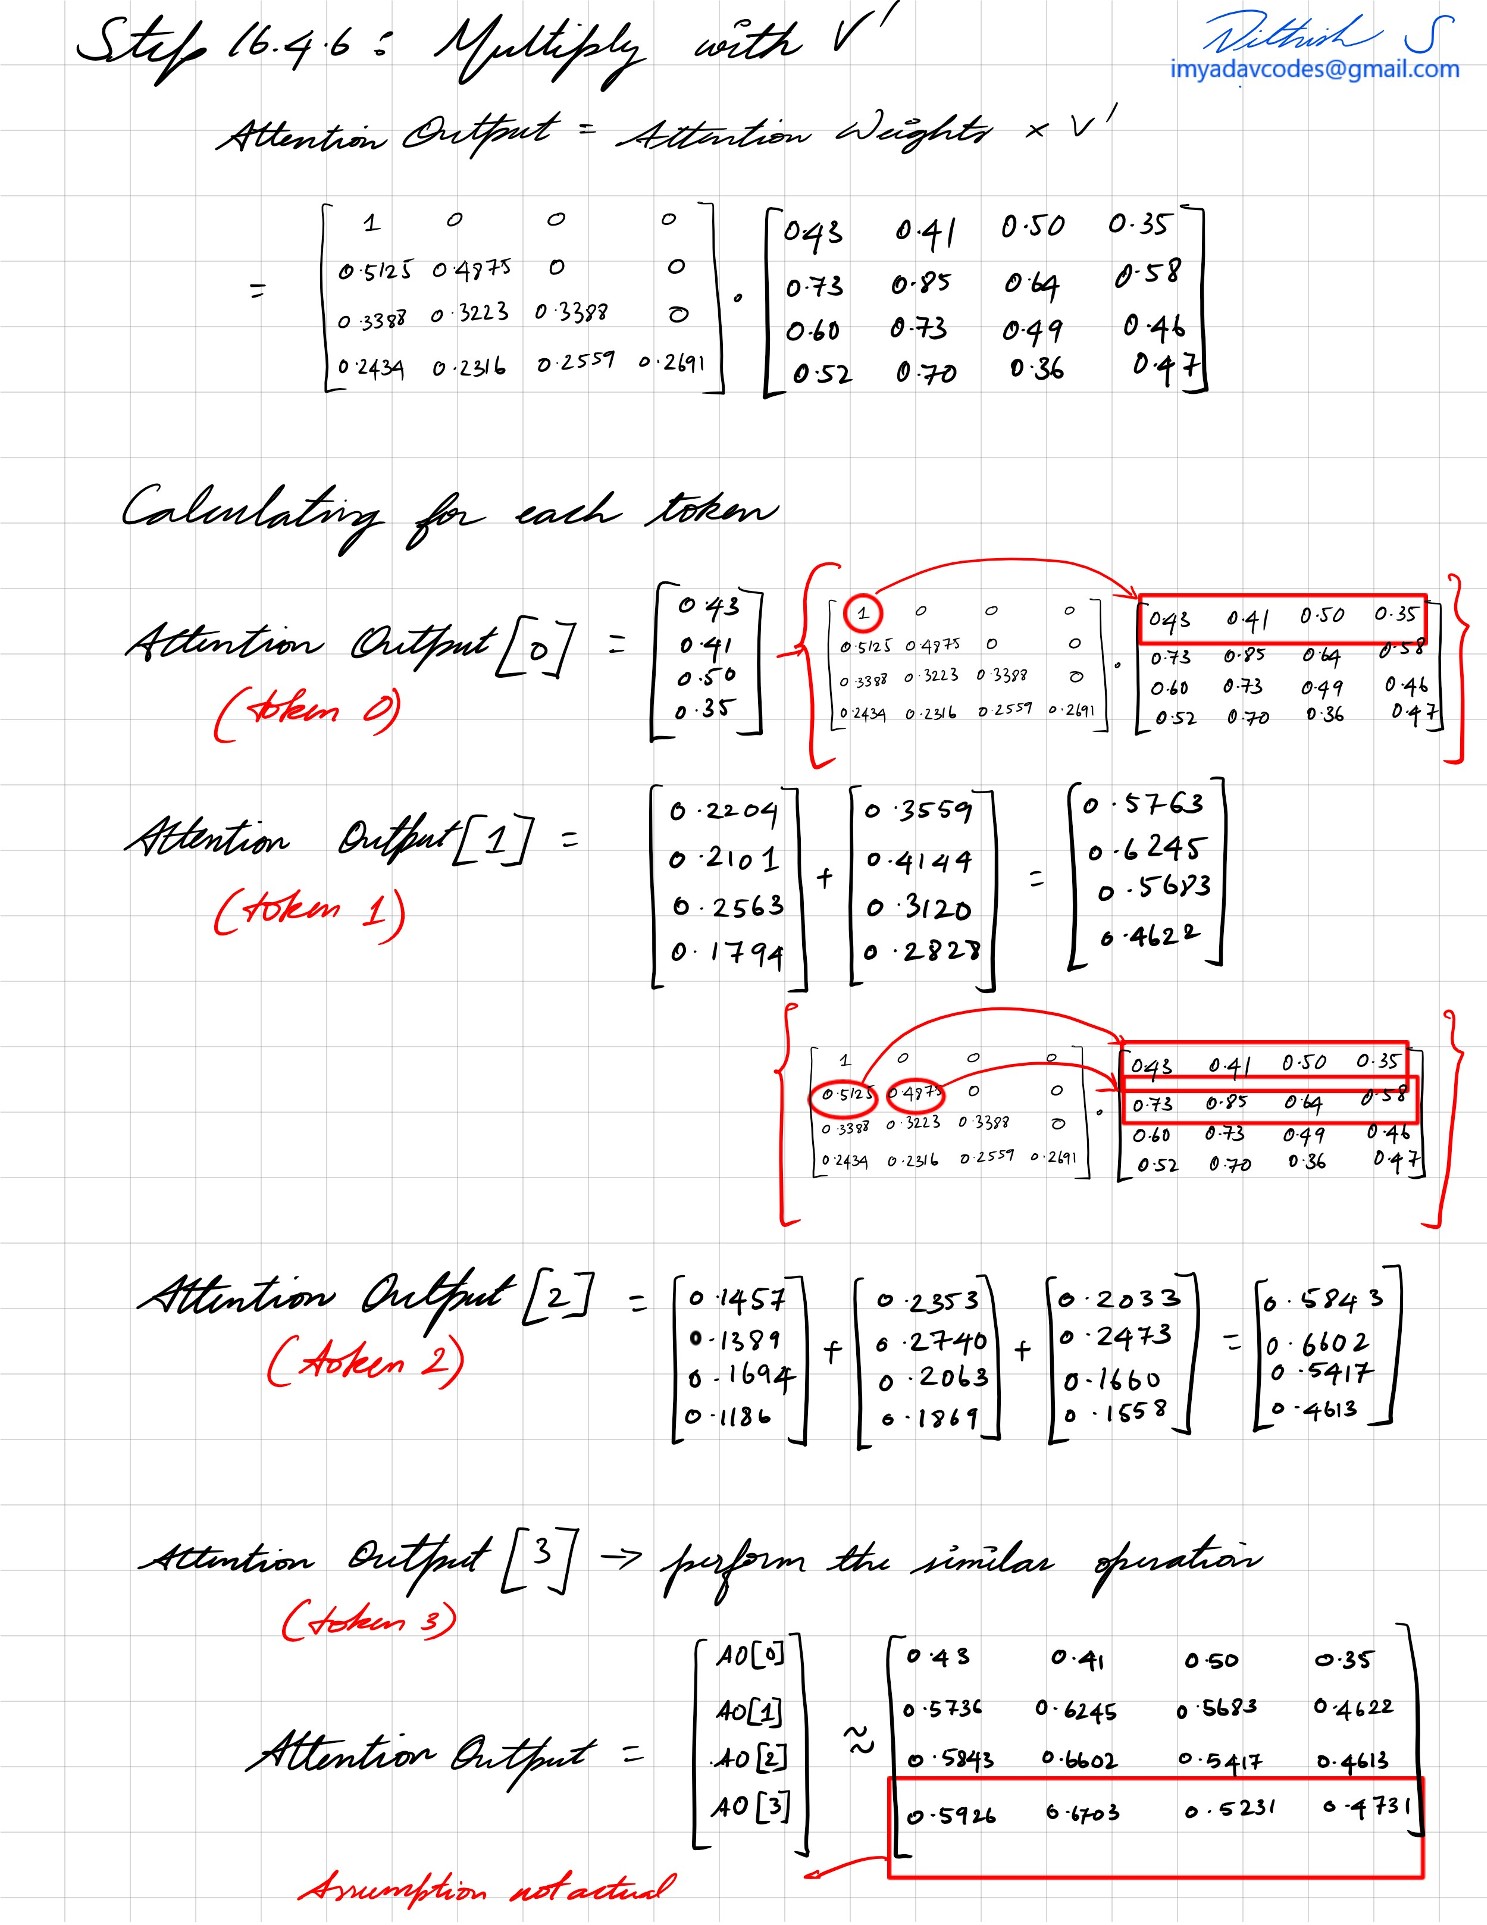 Step 16.4.6 : Multiply with V'
Dithish S
imyadavcodes@gmail.com
Attention Output = Attention Weights × V'
= [ 1 0 0 0
0.5125 0.4875 0 0
0.3388 0.3223 0.3388 0
0.2434 0.2316 0.2559 0.2691 ] . [ 0.43 0.41 0.50 0.35
0.73 0.85 0.64 0.58
0.60 0.73 0.49 0.46
0.52 0.70 0.36 0.47 ]
Calculating for each token
Attention Output [0] = [ 0.43
0.41
0.50
0.35 ]
(token 0)
→ { [ 1 0 0 0
0.5125 0.4875 0 0
0.3388 0.3223 0.3388 0
0.2434 0.2316 0.2559 0.2691 ] . [ 0.43 0.41 0.50 0.35
0.73 0.85 0.64 0.58
0.60 0.73 0.49 0.46
0.52 0.70 0.36 0.47 ] }
Attention Output [1] = [ 0.2204
0.2101
0.2563
0.1794 ] + [ 0.3559
0.4144
0.3120
0.2828 ] = [ 0.5763
0.6245
0.5683
0.4622 ]
(token 1)
{ [ 1 0 0 0
0.5125 0.4875 0 0
0.3388 0.3223 0.3388 0
0.2434 0.2316 0.2559 0.2691 ] . [ 0.43 0.41 0.50 0.35
0.73 0.85 0.64 0.58
0.60 0.73 0.49 0.46
0.52 0.70 0.36 0.47 ] }
Attention Output [2] = [ 0.1457
0.1389
0.1694
0.1186 ] + [ 0.2353
0.2740
0.2063
0.1869 ] + [ 0.2033
0.2473
0.1660
0.1558 ] = [ 0.5843
0.6602
0.5417
0.4613 ]
(token 2)
Attention Output [3] → perform the similar operation
(token 3)
Attention Output = [ AO[0]
AO[1]
AO[2]
AO[3] ] ≈ [ 0.43 0.41 0.50 0.35
0.5736 0.6245 0.5683 0.4622
0.5843 0.6602 0.5417 0.4613
0.5926 0.6703 0.5231 0.4731 ]
Assumption not actual